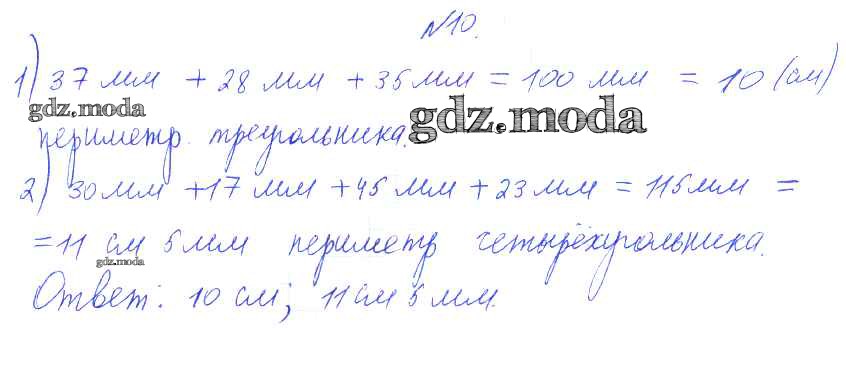 №10.
1) 37 мм + 28 мм + 35 мм = 100 мм = 10 (см)
gdz.moda
периметр треугольника.
gdz.moda
2) 30 мм + 17 мм + 45 мм + 23 мм = 115 мм =
= 11 см 5 мм периметр четырёхугольника.
gdz.moda
Ответ: 10 см; 11 см 5 мм.